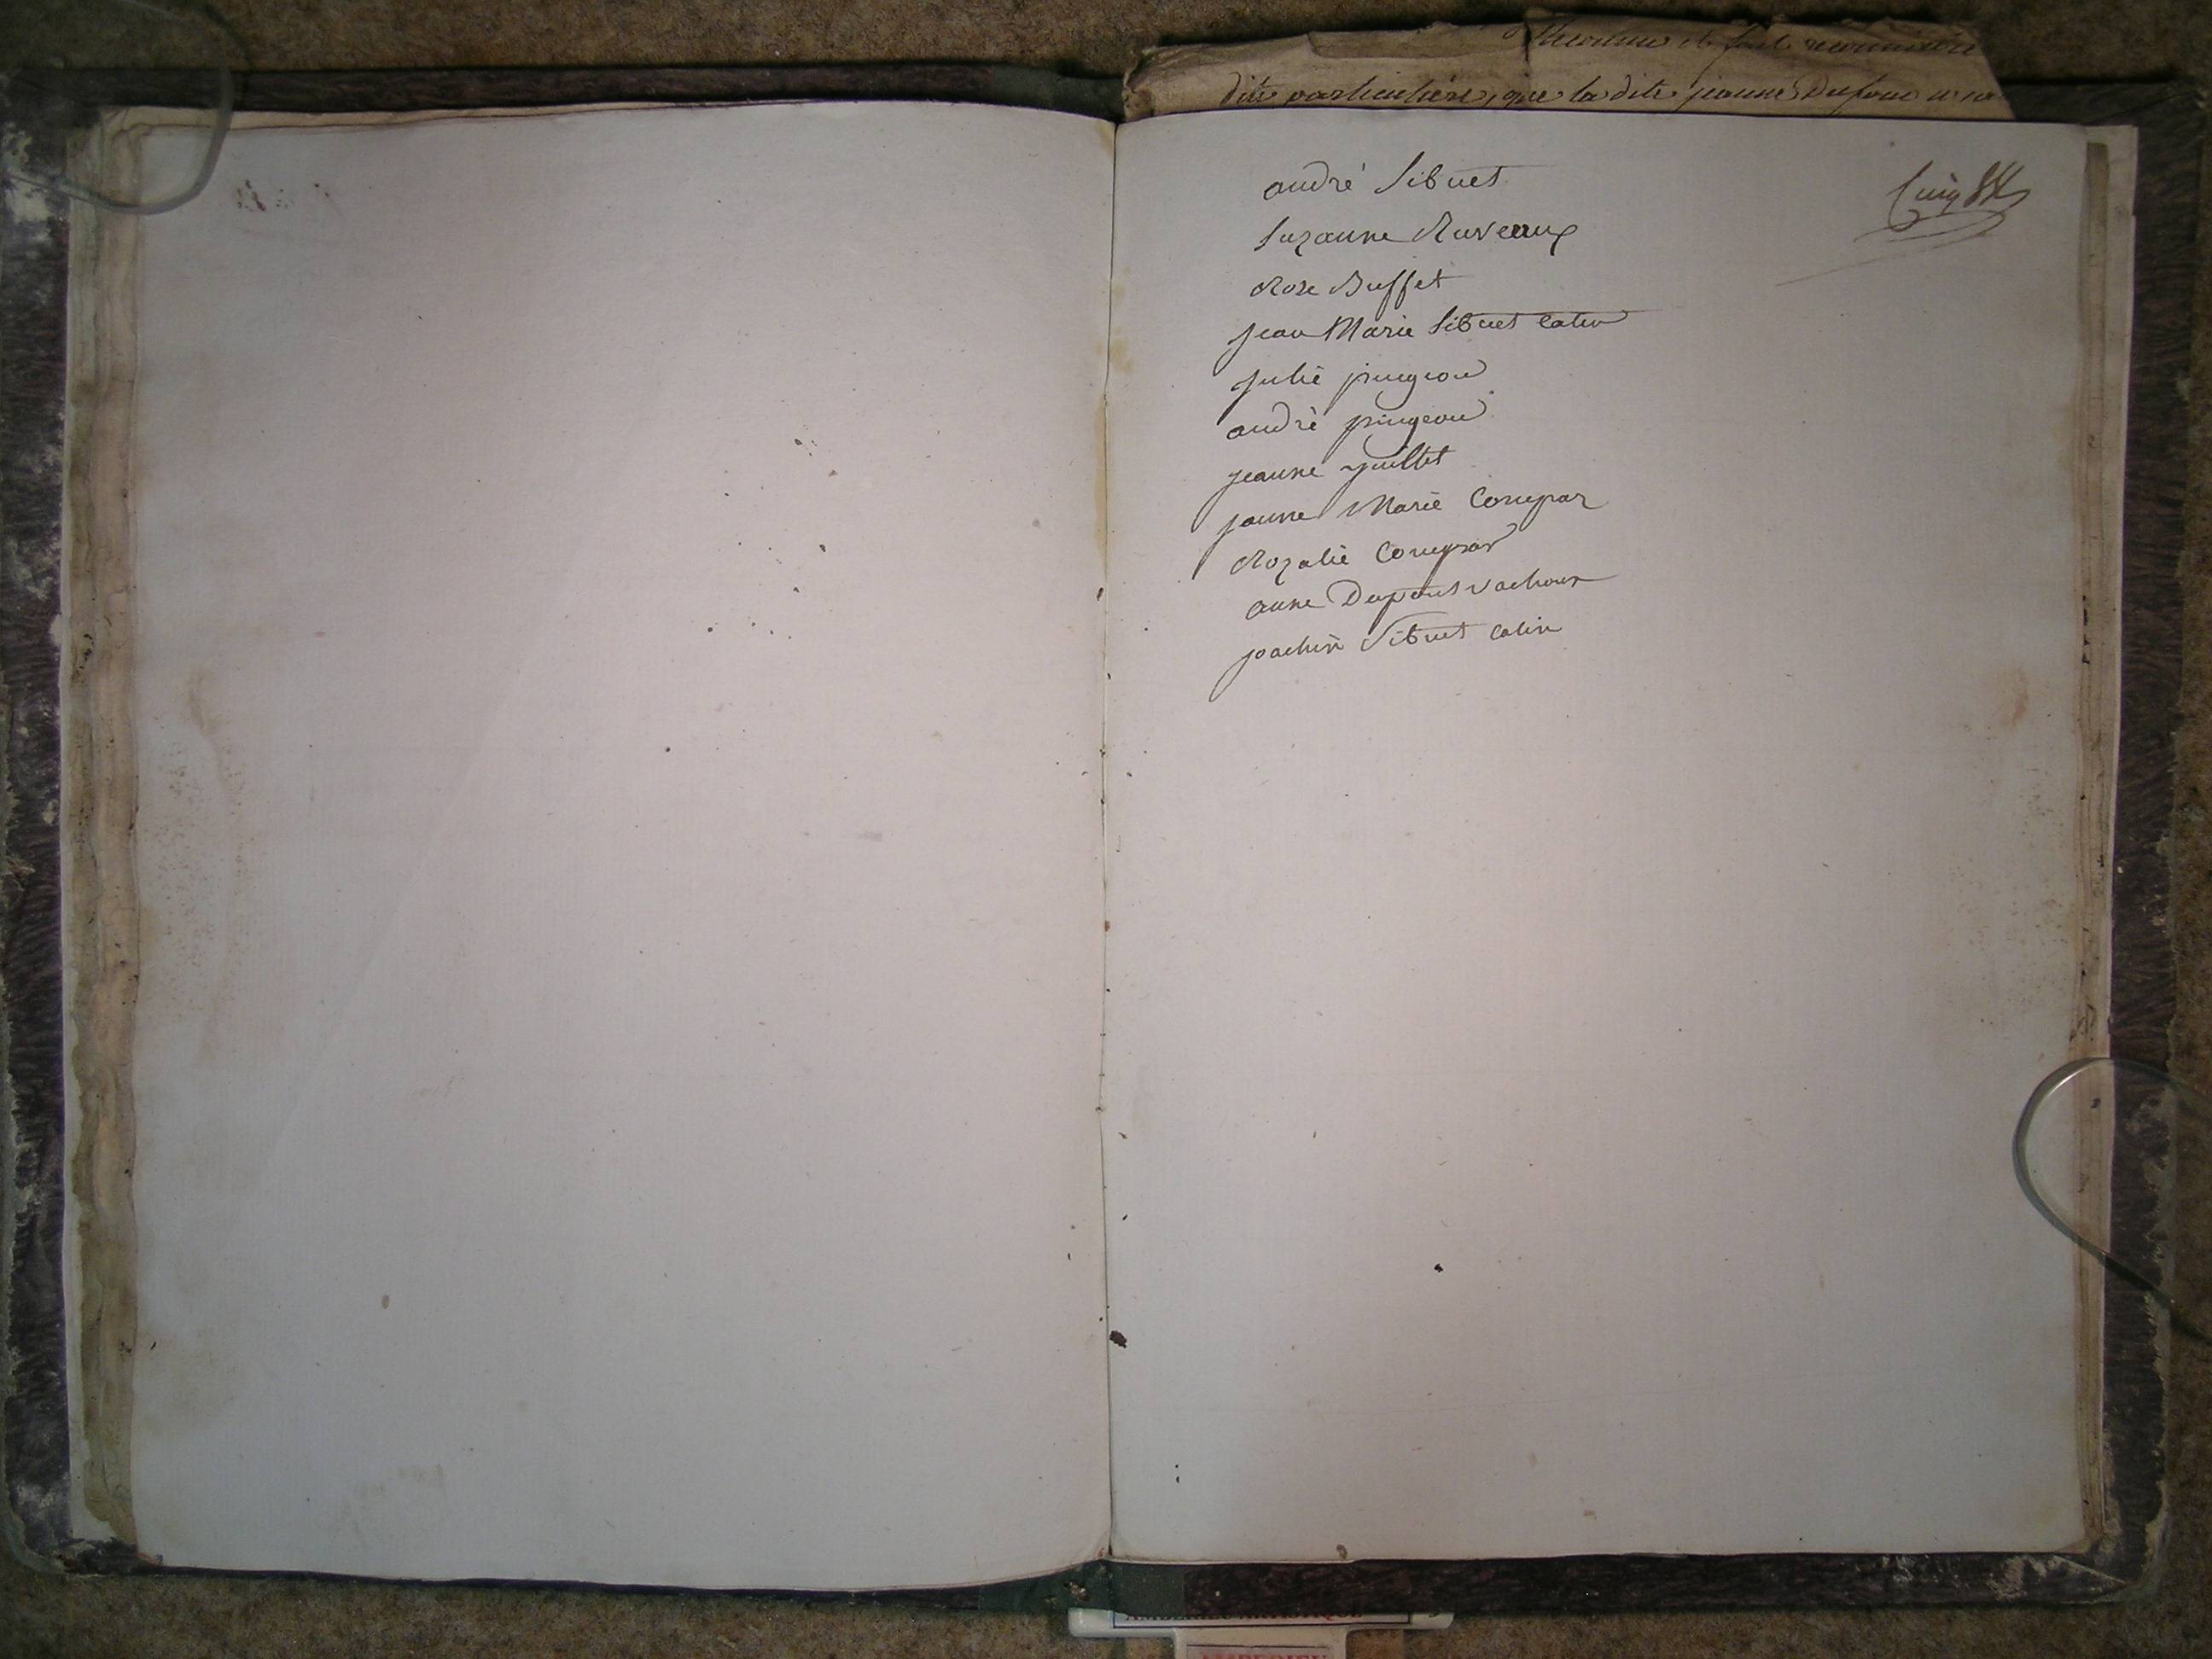 dite particulière, que la dite jeanne Dufour
andré Sibuet
Suzanne Ruveaux
Rose Buffet
jean Marie Sibuet Catin
julie pingeon
andré pingeon
jeanne juillet
jeanne Marie Compar
Rozalie Compar
anne Dupuis vachour
joachin Sibuet Catin
AMBERIEU